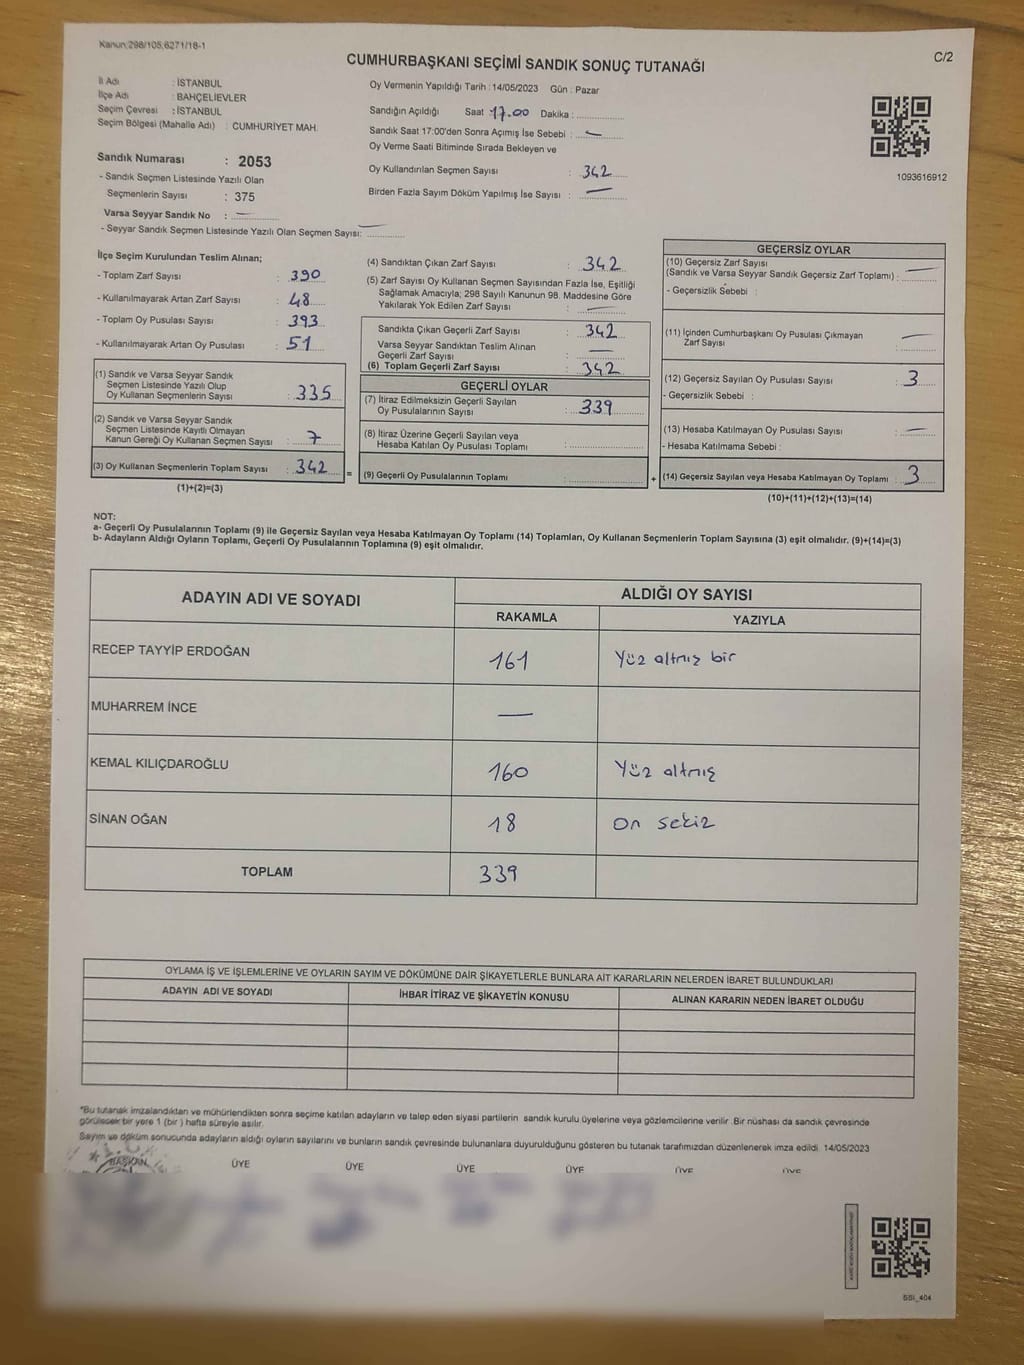 Kanun:298/105,6271/18-1
C/2
CUMHURBAŞKANI SEÇİMİ SANDIK SONUÇ TUTANAĞI
İl Adı : İSTANBUL
İlçe Adı : BAHÇELİEVLER
Seçim Çevresi : İSTANBUL
Seçim Bölgesi (Mahalle Adı) : CUMHURİYET MAH.
Sandık Numarası : 2053
- Sandık Seçmen Listesinde Yazılı Olan
Seçmenlerin Sayısı : 375
Varsa Seyyar Sandık No : —
- Seyyar Sandık Seçmen Listesinde Yazılı Olan Seçmen Sayısı: —
Oy Vermenin Yapıldığı Tarih : 14/05/2023 Gün : Pazar
Sandığın Açıldığı Saat : 17.00 Dakika :
Sandık Saat 17:00'den Sonra Açımış İse Sebebi : —
Oy Verme Saati Bitiminde Sırada Bekleyen ve
Oy Kullandırılan Seçmen Sayısı : 342
Birden Fazla Sayım Döküm Yapılmış İse Sayısı : —
1093616912
İlçe Seçim Kurulundan Teslim Alınan;
- Toplam Zarf Sayısı : 390
- Kullanılmayarak Artan Zarf Sayısı : 48
- Toplam Oy Pusulası Sayısı : 393
- Kullanılmayarak Artan Oy Pusulası : 51
(1) Sandık ve Varsa Seyyar Sandık
Seçmen Listesinde Yazılı Olup
Oy Kullanan Seçmenlerin Sayısı : 335
(2) Sandık ve Varsa Seyyar Sandık
Seçmen Listesinde Kayıtlı Olmayan
Kanun Gereği Oy Kullanan Seçmen Sayısı : 7
(3) Oy Kullanan Seçmenlerin Toplam Sayısı : 342
(1)+(2)=(3)
=
(4) Sandıktan Çıkan Zarf Sayısı : 342
(5) Zarf Sayısı Oy Kullanan Seçmen Sayısından Fazla İse, Eşitliği
Sağlamak Amacıyla; 298 Sayılı Kanunun 98. Maddesine Göre
Yakılarak Yok Edilen Zarf Sayısı : —
Sandıkta Çıkan Geçerli Zarf Sayısı : 342
Varsa Seyyar Sandıktan Teslim Alınan
Geçerli Zarf Sayısı : —
(6) Toplam Geçerli Zarf Sayısı : 342
GEÇERLİ OYLAR
(7) İtiraz Edilmeksizin Geçerli Sayılan
Oy Pusulalarının Sayısı : 339
(8) İtiraz Üzerine Geçerli Sayılan veya
Hesaba Katılan Oy Pusulası Toplamı :
(9) Geçerli Oy Pusulalarının Toplamı :
+
GEÇERSİZ OYLAR
(10) Geçersiz Zarf Sayısı
(Sandık ve Varsa Seyyar Sandık Geçersiz Zarf Toplamı) : —
- Geçersizlik Sebebi :
(11) İçinden Cumhurbaşkanı Oy Pusulası Çıkmayan
Zarf Sayısı : —
(12) Geçersiz Sayılan Oy Pusulası Sayısı : 3
- Geçersizlik Sebebi :
(13) Hesaba Katılmayan Oy Pusulası Sayısı : —
- Hesaba Katılmama Sebebi :
(14) Geçersiz Sayılan veya Hesaba Katılmayan Oy Toplamı : 3
(10)+(11)+(12)+(13)=(14)
NOT:
a- Geçerli Oy Pusulalarının Toplamı (9) ile Geçersiz Sayılan veya Hesaba Katılmayan Oy Toplamı (14) Toplamları, Oy Kullanan Seçmenlerin Toplam Sayısına (3) eşit olmalıdır. (9)+(14)=(3)
b- Adayların Aldığı Oyların Toplamı, Geçerli Oy Pusulalarının Toplamına (9) eşit olmalıdır.
ADAYIN ADI VE SOYADI
ALDIĞI OY SAYISI
RAKAMLA YAZIYLA
RECEP TAYYİP ERDOĞAN 161 Yüz altmış bir
MUHARREM İNCE —
KEMAL KILIÇDAROĞLU 160 Yüz altmış
SİNAN OĞAN 18 On sekiz
TOPLAM 339
OYLAMA İŞ VE İŞLEMLERİNE VE OYLARIN SAYIM VE DÖKÜMÜNE DAİR ŞİKAYETLERLE BUNLARA AİT KARARLARIN NELERDEN İBARET BULUNDUKLARI
ADAYIN ADI VE SOYADI İHBAR İTİRAZ VE ŞİKAYETİN KONUSU ALINAN KARARIN NEDEN İBARET OLDUĞU
*Bu tutanak imzalandıktan ve mühürlendikten sonra seçime katılan adayların ve talep eden siyasi partilerin sandık kurulu üyelerine veya gözlemcilerine verilir. Bir nüshası da sandık çevresinde
görülecek bir yere 1 (bir ) hafta süreyle asılır.
Sayım ve döküm sonucunda adayların aldığı oyların sayılarını ve bunların sandık çevresinde bulunanlara duyurulduğunu gösteren bu tutanak tarafımızdan düzenlenerek imza edildi. 14/05/2023
BAŞKAN ÜYE ÜYE ÜYE ÜYE ÜYE ÜYE
SSI_404